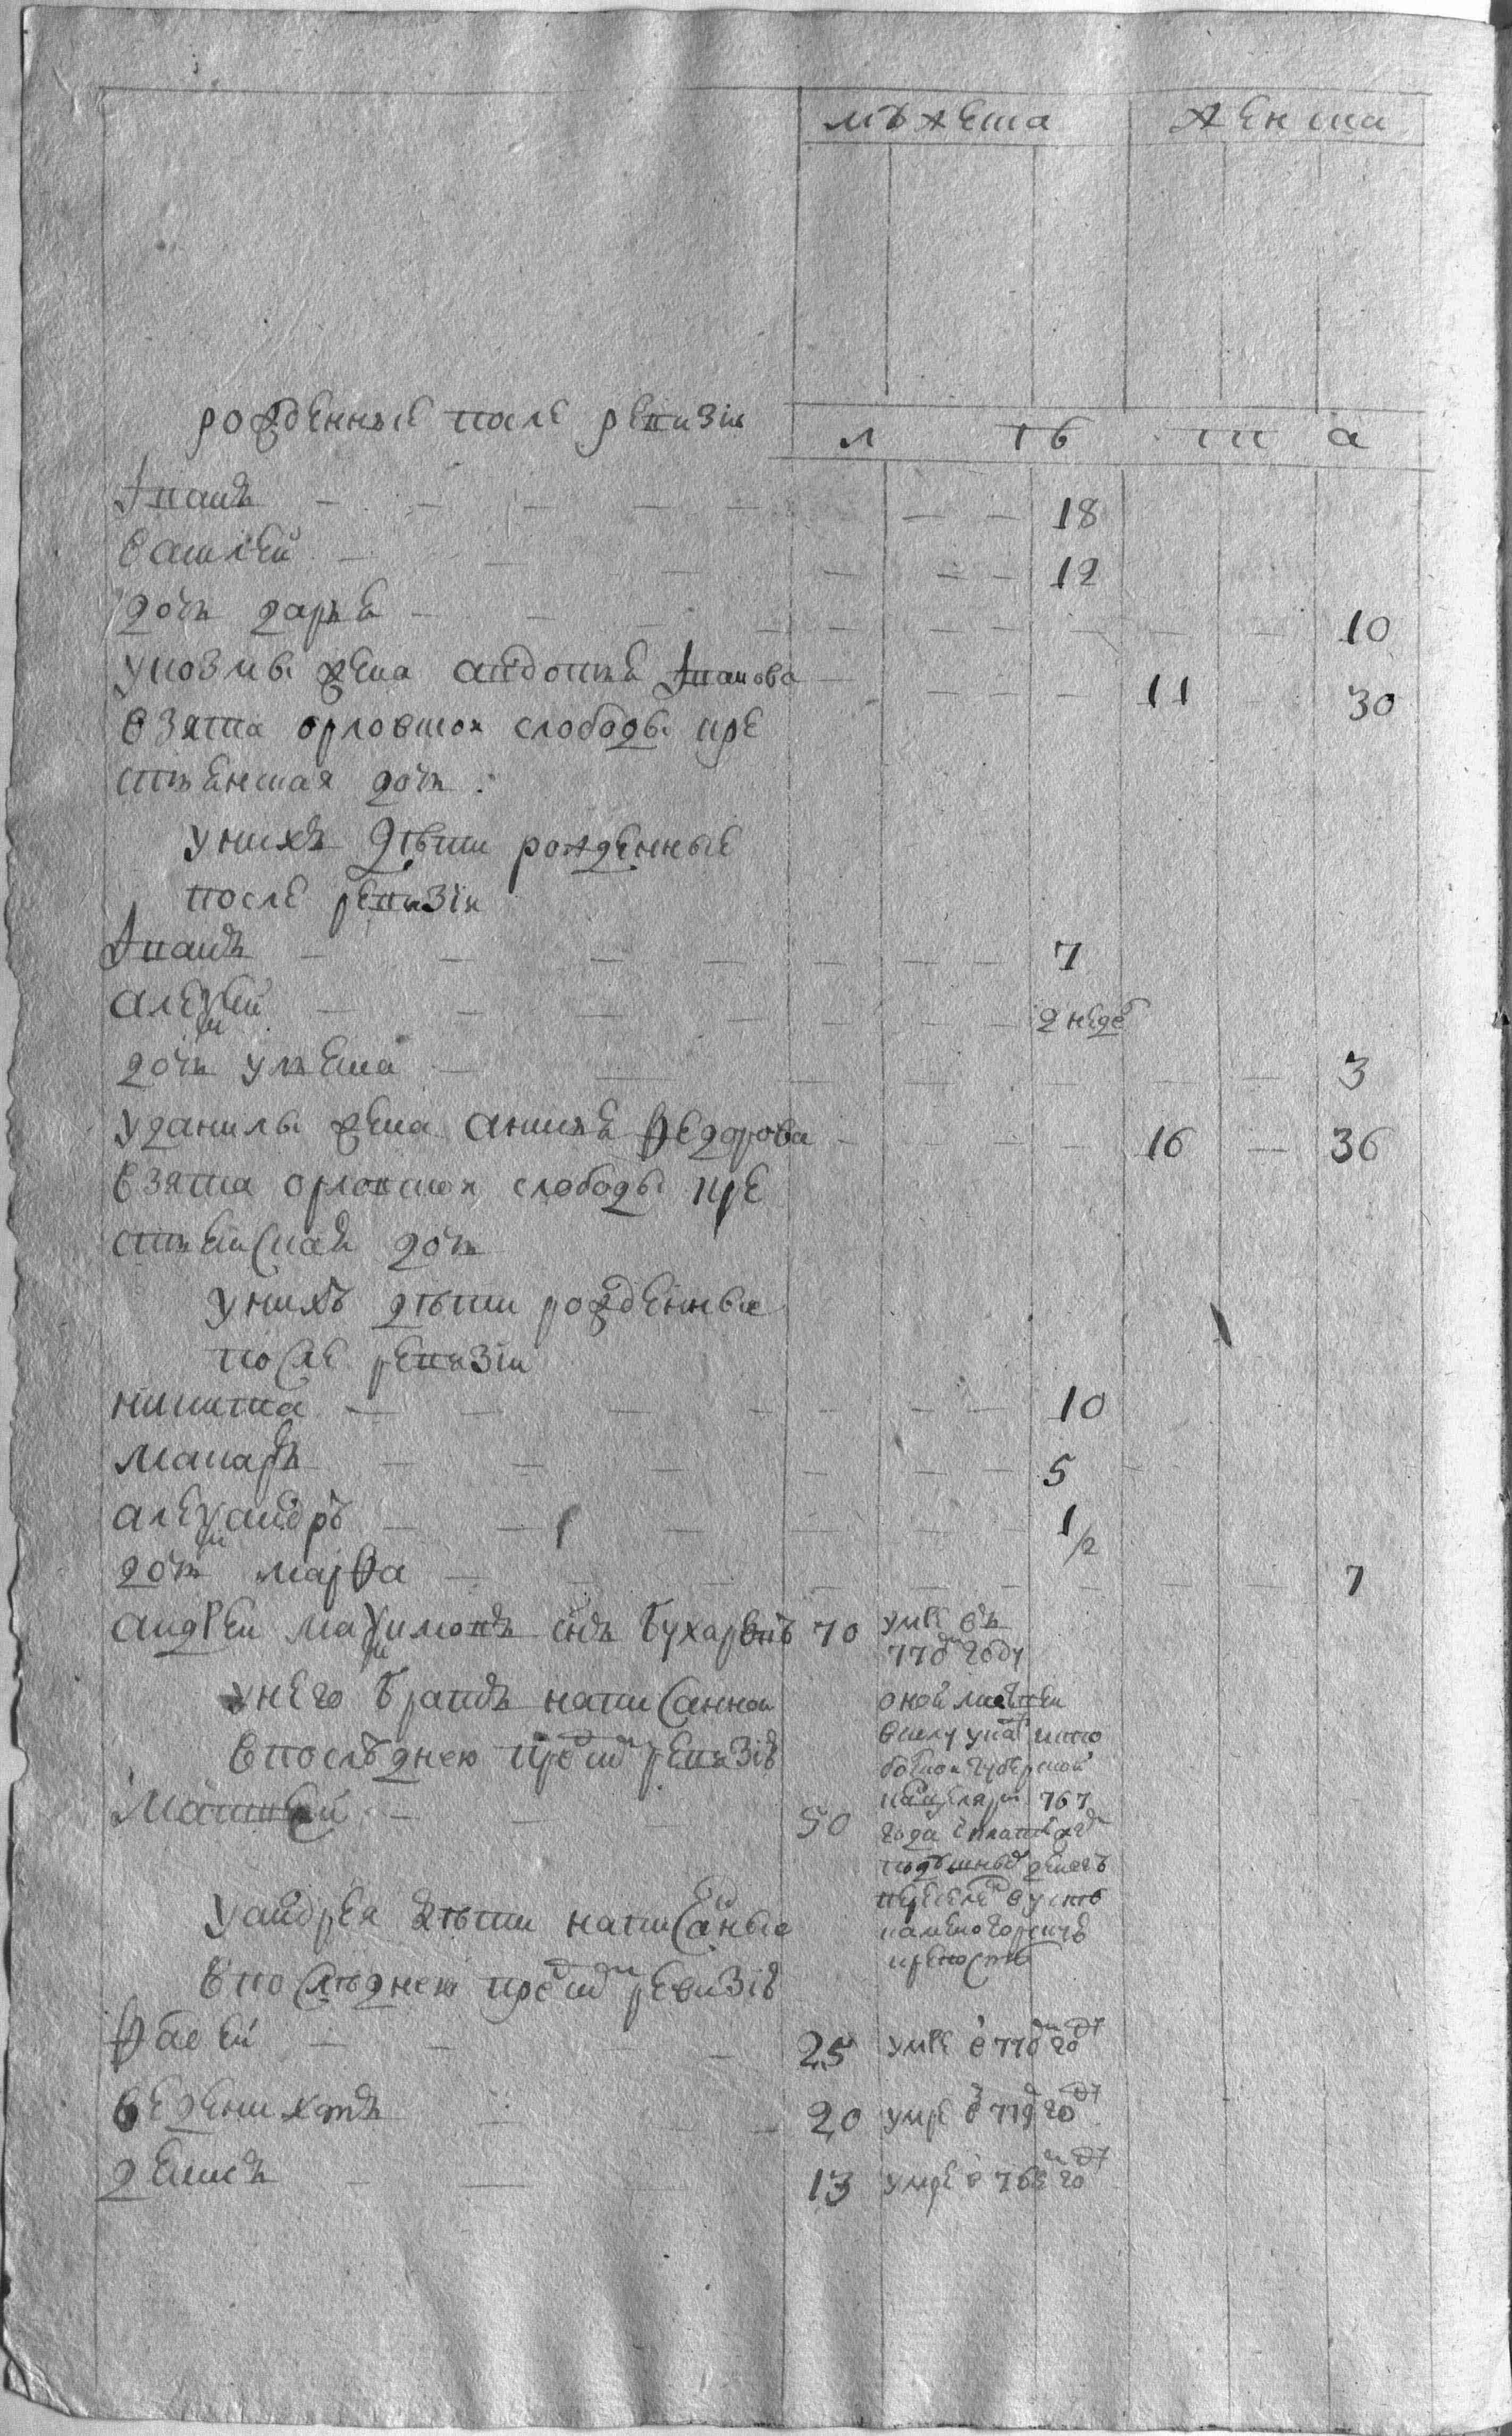 мужеска женска
рожденные после ревизіи
л ѣ т а
Іванъ 18
василей 12
дочь дарья 10
укозмы жена авдотья Іванова 11 30
взята орловской слободы кре
стьянская дочь
унихъ дѣти рожденные
после ревизіи
Іванъ 7
алеѯѣй 2 неде
дочь ульяна 3
уданилы жена анисья Ѳедорова 16 36
взята орловской слободы кре
стьянская дочь
унихъ дѣти рожденные
после ревизіи
никита 10
макаръ 5
алеѯандръ 1/2
дочь марѳа 7
андрей маѯимовъ снъ бухаревъ 70 умре въ
770м году
унего братъ написанной
впоследнею пред сим ревизіе
матвей 50
оной матвей
всилу указа
губернской
канцеляри 767
года
подушных денегъ
переселен в усть
каменогорскую
крепость
уандрея дѣти написаные
впоследнею пред сим ревизіе
Ѳадей 25 умре в 770м году
венедихтъ 20 умре в году
денисъ 13 умре в году